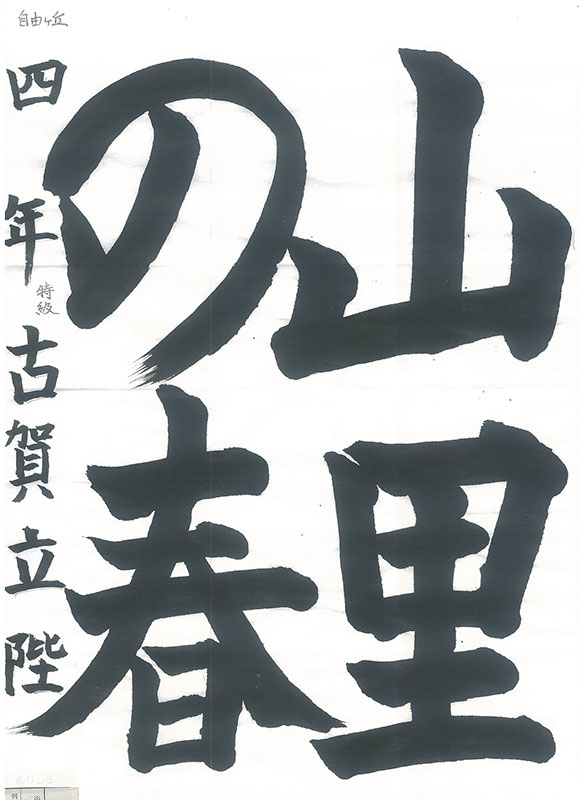 自由ヶ丘
山里
の春
四年 古賀立陛
特級
のりしろ